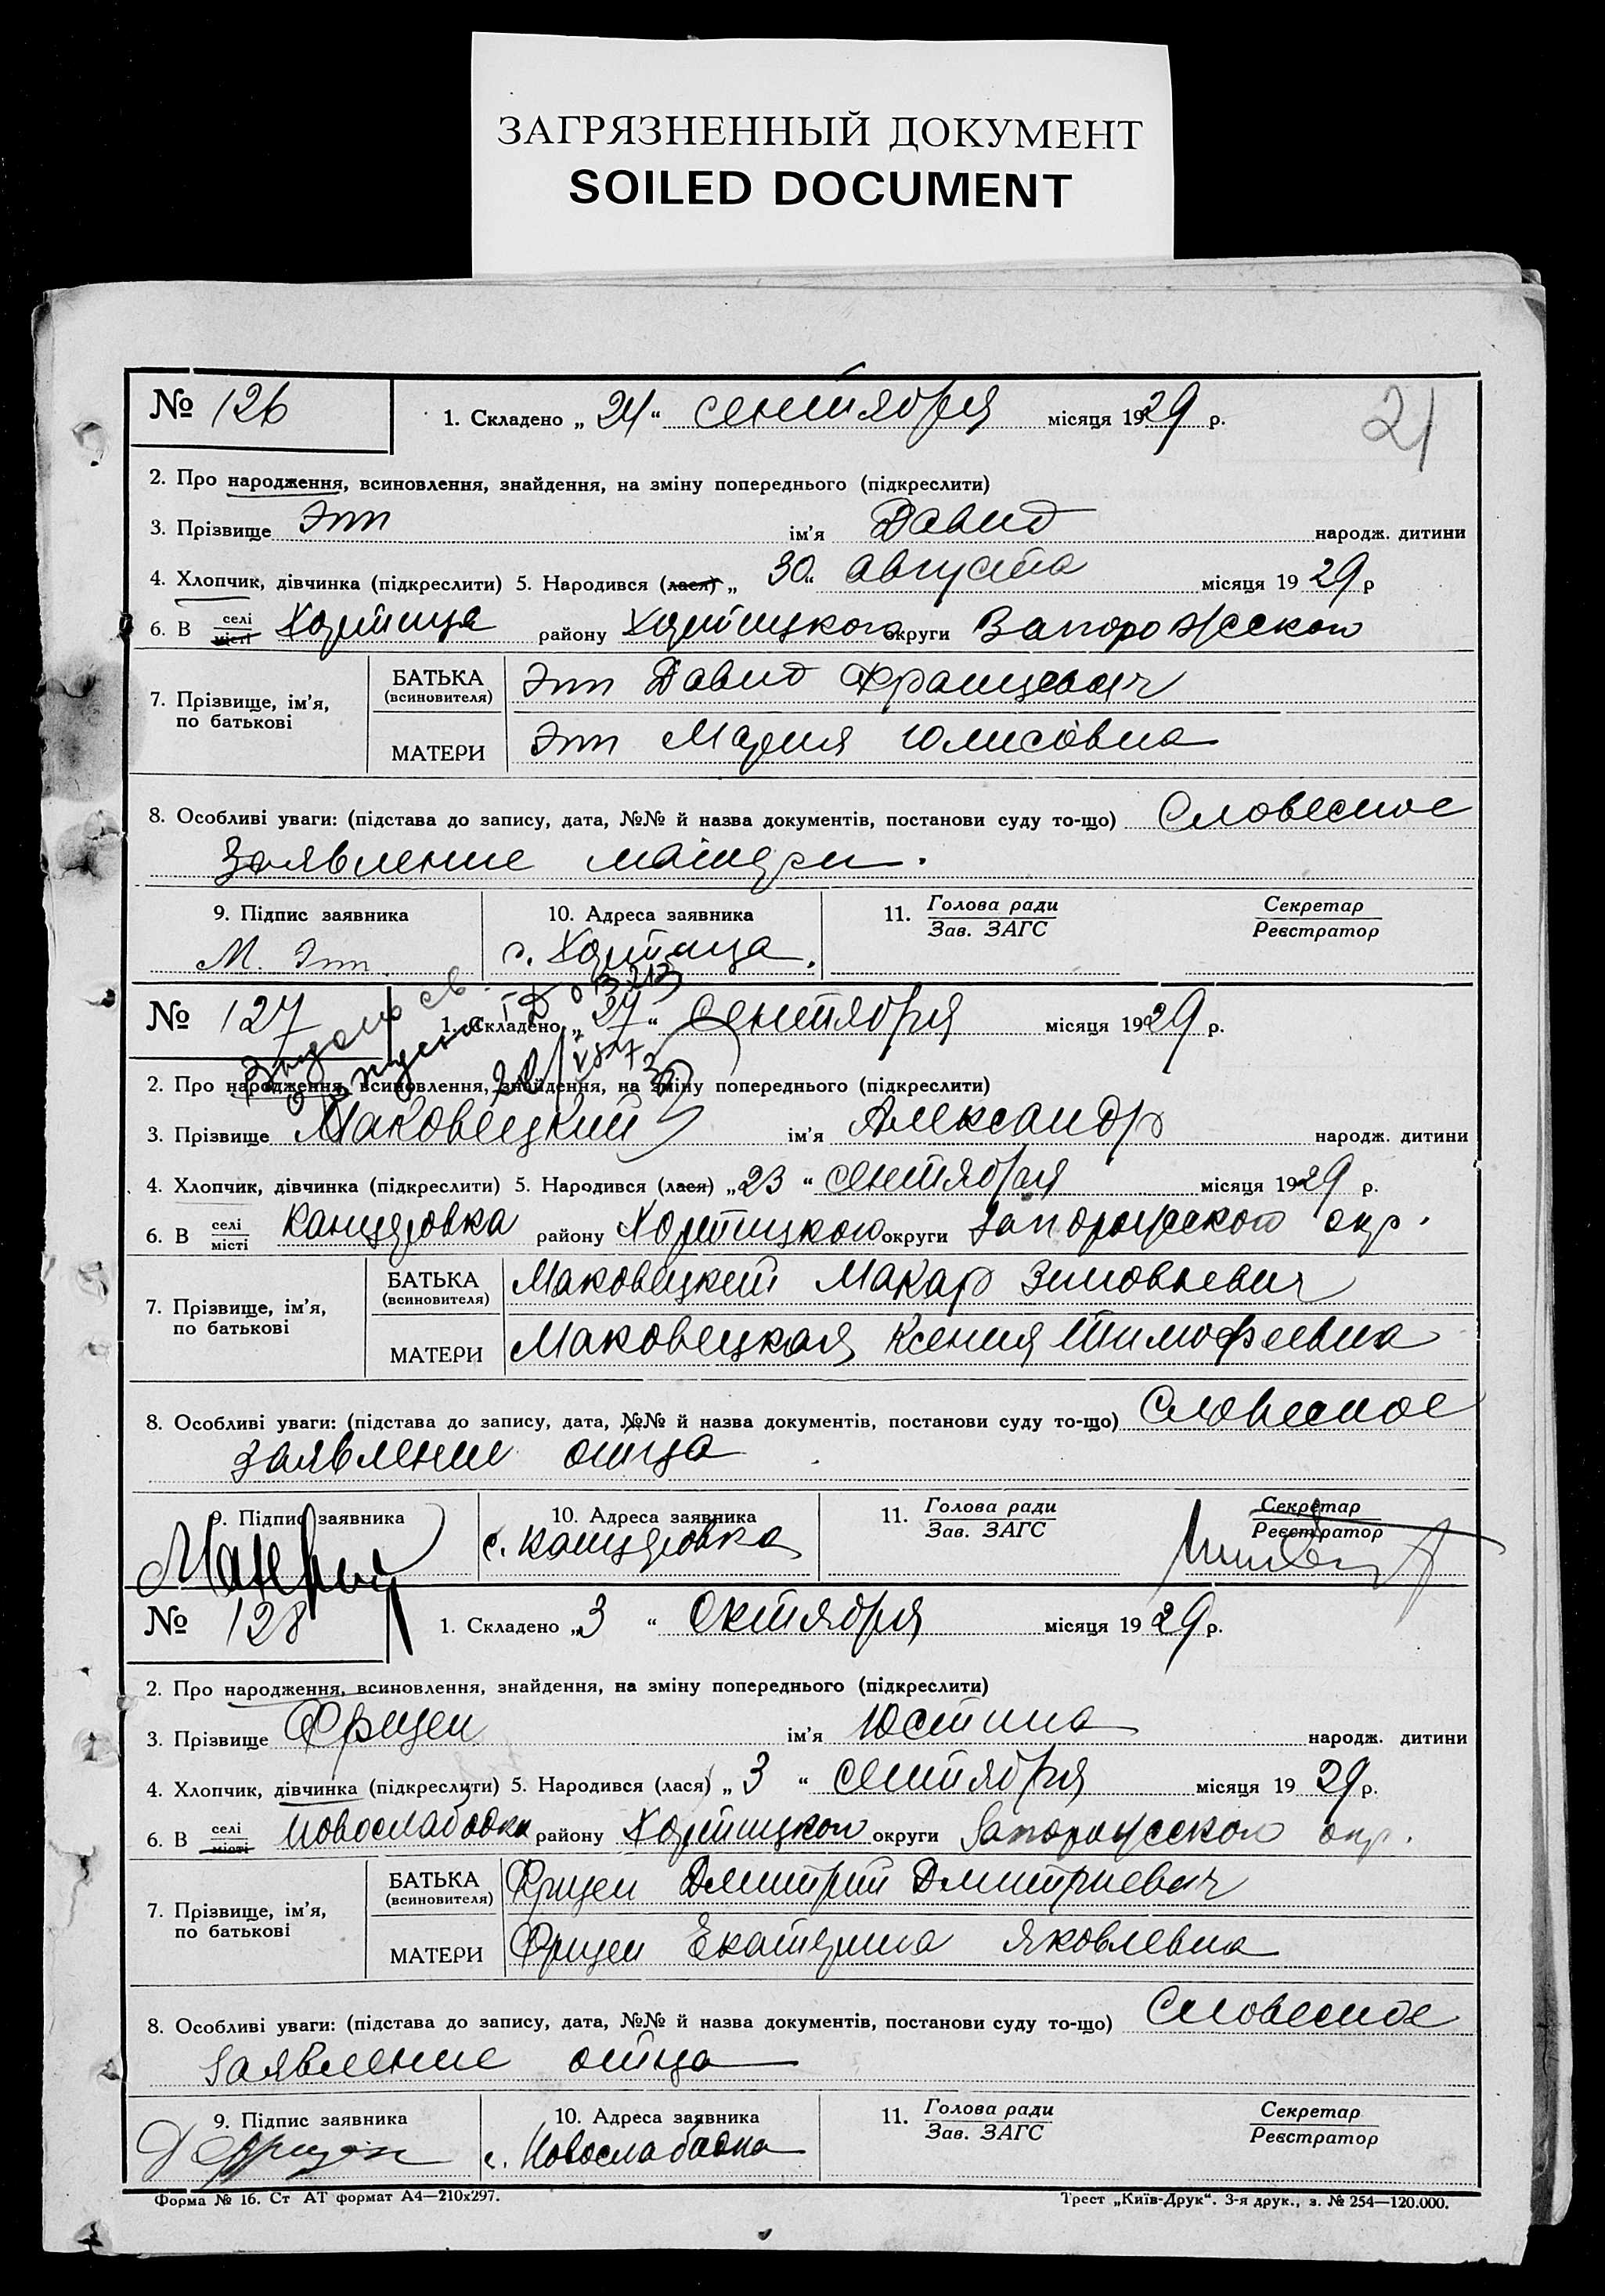 ЗАГРЯЗНЕННЫЙ ДОКУМЕНТ
SOILED DOCUMENT
№ 126
1. Складено „ 24 “ сентября місяця 1929 р.
21
2. Про народження, всиновлення, знайдення, на зміну попереднього (підкреслити)
3. Прізвище Эпп ім'я Давид народж. дитини
4. Хлопчик, дівчинка (підкреслити) 5. Народився (лася) „ 30 “ августа місяця 1929 р
6. В селі місті Хортица району Хортицкого округи Запорожского
7. Прізвище, ім'я, по батькові
БАТЬКА (всиновителя) Эпп Давид Францевич
МАТЕРИ Эпп Мария
8. Особливі уваги: (підстава до запису, дата, №№ й назва документів, постанови суду то-що) Словесное
Заявление матери.
9. Підпис заявника
10. Адреса заявника
11. Голова ради Зав. ЗАГС
Секретар Реєстратор
М. Эпп.
с. Хортица.
№ 127
1. Складено „ 27 “ Сентября місяця 1929 р.
2. Про народження, всиновлення, знайдення, на зміну попереднього (підкреслити)
3. Прізвище Маковецкий ім'я Александр народж. дитини
4. Хлопчик, дівчинка (підкреслити) 5. Народився (лася) „ 23 “ сентября місяця 1929 р.
6. В селі місті Канцеровка району Хортицкого округи Запорожского окр.
7. Прізвище, ім'я, по батькові
БАТЬКА (всиновителя) Маковецкий Макар Зиновьевич
МАТЕРИ Маковецкая Ксения Тимофеевна
8. Особливі уваги: (підстава до запису, дата, №№ й назва документів, постанови суду то-що) Словесное
заявление отца
9. Підпис заявника
10. Адреса заявника
11. Голова ради Зав. ЗАГС
Секретар Реєстратор
с. Канцеровка
№ 128
1. Складено „ 3 “ Октября місяця 1929 р.
2. Про народження, всиновлення, знайдення, на зміну попереднього (підкреслити)
3. Прізвище Фризен ім'я Юстина народж. дитини
4. Хлопчик, дівчинка (підкреслити) 5. Народився (лася) „ 3 “ сентября місяця 1929 р.
6. В селі місті Новослабодка району Хортицкого округи Запорожского окр.
7. Прізвище, ім'я, по батькові
БАТЬКА (всиновителя) Фризен Дмитрий Дмитриевич
МАТЕРИ Фризен Екатерина Яковлевна
8. Особливі уваги: (підстава до запису, дата, №№ й назва документів, постанови суду то-що) Словесное
Заявление отца
9. Підпис заявника
10. Адреса заявника
11. Голова ради Зав. ЗАГС
Секретар Реєстратор
Д Фризен
с. Новослабодка
Форма № 16. Ст АТ формат А4—210х297.
Трест „Київ-Друк“. 3-я друк., з. № 254—120.000.